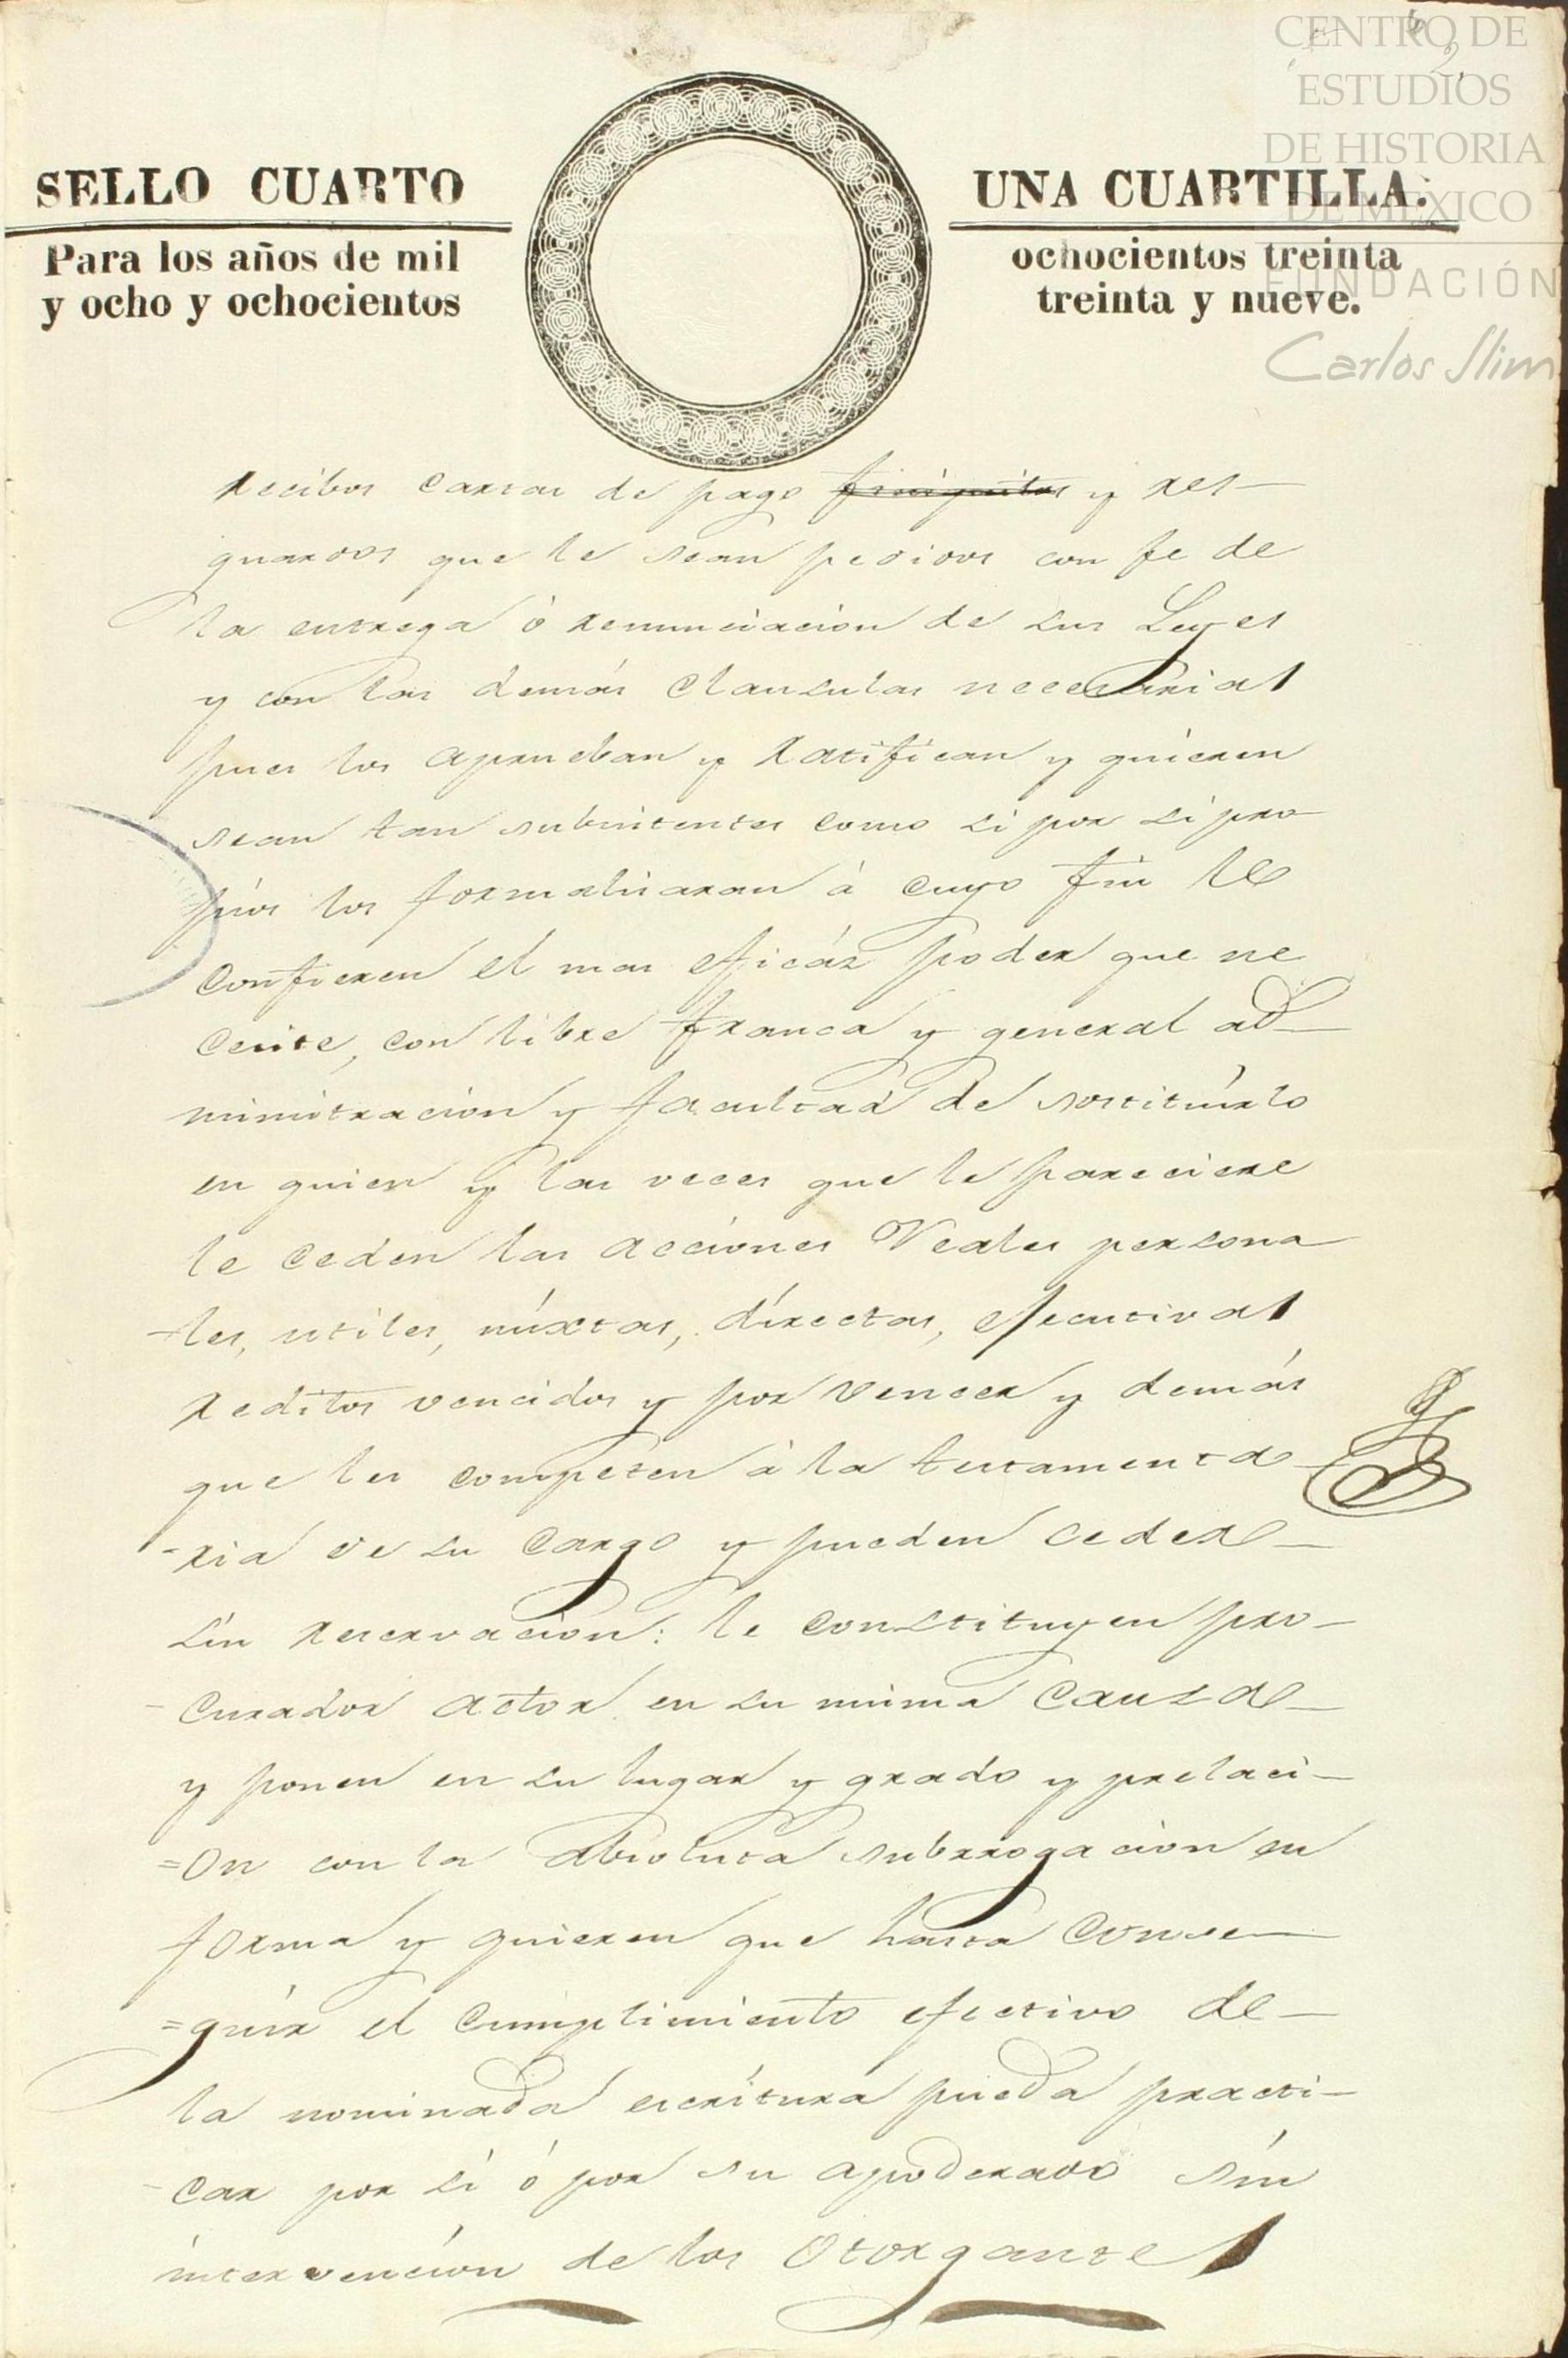 CENTRO DE
ESTUDIOS
DE HISTORIA
DE MÉXICO
FUNDACIÓN
Carlos Slim
2
SELLO CUARTO
UNA CUARTILLA.
Para los años de mil
ochocientos treinta
y ocho y ochocientos
treinta y nueve.
recibos cartas de pago finiquitos y res-
guardos que le sean pedidos con fe de
la entrega ó renunciacion de sus Leyes
y con las demás clausulas necesarias
pues los aprueban y ratifican y quieren
sean tan subsistentes como si por si pro
pios los formalizaran á cuyo fin le
confieren el mas eficáz poder que ne
cesite, con libre franca y general ad-
ministracion y facultad de sostituirlo
en quien y las veces que le pareciere
le ceden las acciones Reales persona
-les, utiles, mixtas, directas, ejecutivas
reditos vencidos y por vencer y demás
que les competen á la testamenta
-ria de su cargo y pueden ceder-
sin reservacion: le constituyen pro-
-curador actor en su misma causa-
y ponen en su lugar y grado y prelaci-
=on con la absoluta subrrogacion en
forma y quieren que hasta conse-
=guir el cumplimiento efectivo de-
la nominada escritura pueda practi-
-car por sí ó por su apoderado sin
intervención de los Otorgantes